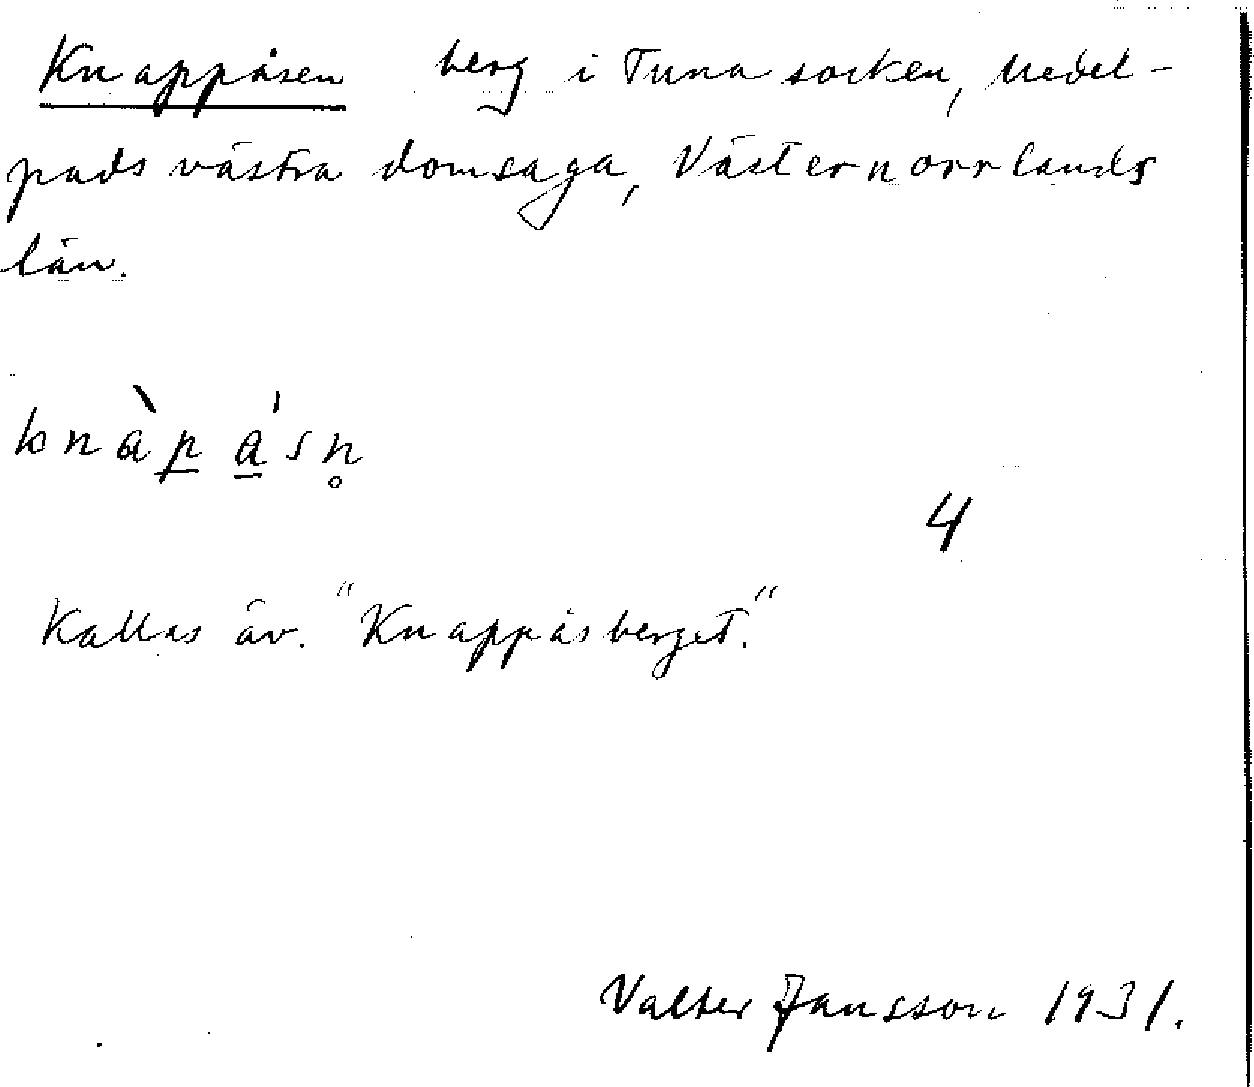 Knappåsen berg i Tuna socken, Medel-
pads västra domsaga, Västernorrlands
län.
knàp åsn̥
4
Kallas äv. "Knappåsberget."
Valter Jansson 1931.